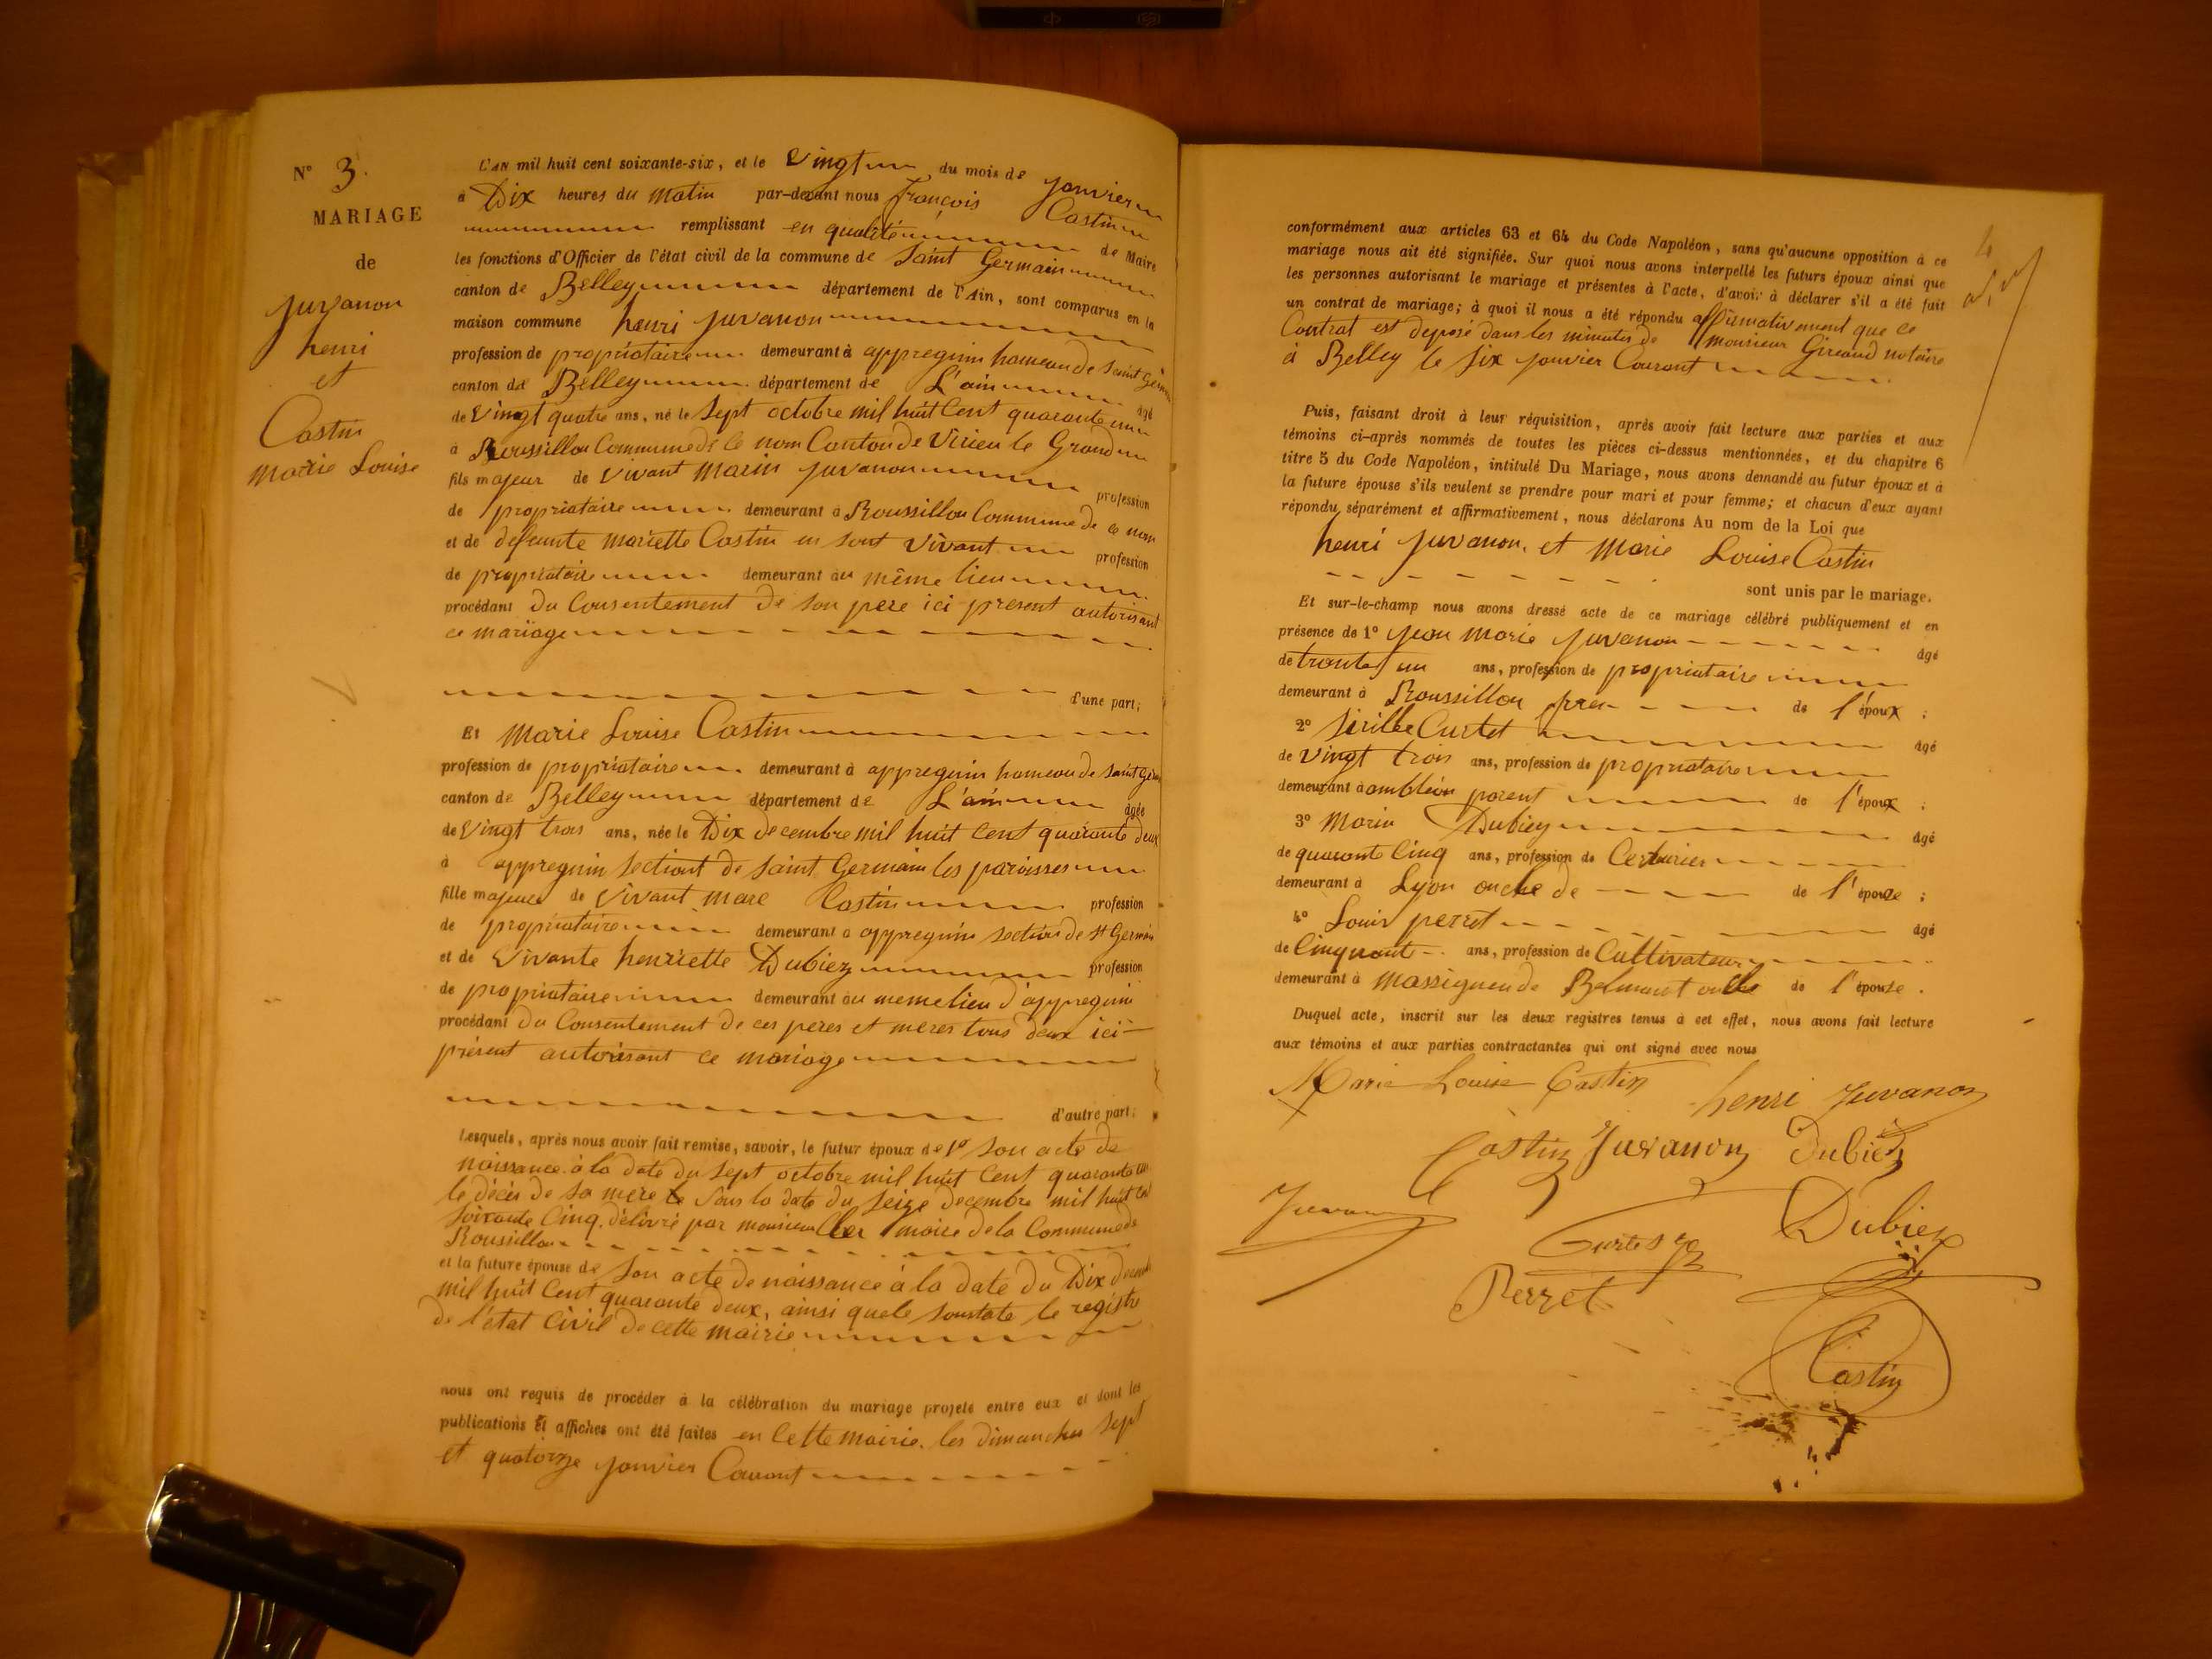 N° 3.
MARIAGE
de
juvanon
henri
et
Castin
marie Louise
L'AN mil huit cent soixante-six, et le Vingt du mois de janvier
à Dix heures du matin par-devant nous françois Castin
remplissant en qualité de Maire
les fonctions d'Officier de l'état civil de la commune de Saint Germain
canton de Belley département de l'Ain, sont comparus en la
maison commune henri juvanon
profession de propriataire demeurant à appregnin hameau de Saint Germ
canton de Belley département de L'ain âgé
de Vingt quatre ans, né le Sept octobre mil huit Cent quarante un
à Roussillon Commune de ce nom Canton de Virieu le Grand
fils majeur de vivant Marin juvanon profession
de propriataire demeurant à Roussillon Commune de ce nom
et de defeunte mariette Castin en sont vivant profession
de propriataire demeurant au même lieu
procédant du Consentement de son pere ici present autorisant
ce mariage
d'une part;
Et Marie Louise Castin
profession de propriataire demeurant à appregnin hameau de Saint Ger
canton de Belley département de L'ain âgée
de Vingt trois ans, née le Dix decembre mil huit cent quarante deux
à appregnin sectiont de Saint Germain les paroisses
fille majeure de Vivant marc Castin profession
de propriataire demeurant à appregnin section de St Germain
et de Vivante henriette Dubiez profession
de propriataire demeurant au meme lieu d'appregnin
procédant du Consentement de ces peres et meres tous deux ici
présent autorisant ce mariage
d'autre part:
Lesquels, après nous avoir fait remise, savoir, le futur époux de 1° son acte de
naissance à la date du sept octobre mil huit Cent quarante un
le décès de sa mere sous la date du seize decembre mil huit Cent
soixante Cinq. délivré par monsieur maire de la Commune de
Roussillon
et la future épouse de son acte de naissance à la date du Dix decemb
mil huit Cent quarante deux, ainsi que le constate le registre
de l'état Civil de cette mairie
nous ont requis de procéder à la célébration du mariage projeté entre eux et dont les
publications et affiches ont été faites en Cette mairie. les dimanches sept
et quatorze janvier Courant
4
conformément aux articles 63 et 64 du Code Napoléon, sans qu'aucune opposition à ce
mariage nous ait été signifiée. Sur quoi nous avons interpellé les futurs époux ainsi que
les personnes autorisant le mariage et présentes à l'acte, d'avoir à déclarer s'il a été fait
un contrat de mariage; à quoi il nous a été répondu affirmativement que ce
Contrat est deposé dans les minutes de monsieur Gireaud notaire
à Belley le six janvier Courant
Puis, faisant droit à leur réquisition, après avoir fait lecture aux parties et aux
témoins ci-après nommés de toutes les pièces ci-dessus mentionnées, et du chapitre 6
titre 5 du Code Napoléon, intitulé Du Mariage, nous avons demandé au futur époux et à
la future épouse s'ils veulent se prendre pour mari et pour femme; et chacun d'eux ayant
répondu séparément et affirmativement, nous déclarons Au nom de la Loi que
henri juvanon. et Marie Louise Castin
sont unis par le mariage.
Et sur-le-champ nous avons dressé acte de ce mariage célébré publiquement et en
présence de 1° jean Marie juvanon âgé
de trante un ans, profession de propriataire
demeurant à Roussillon de l'époux;
2° Curtet âgé
de Vingt trois ans, profession de propriataire
demeurant à ambléon parent de l'époux;
3° Marin Dubiez âgé
de quarante Cinq ans, profession de
demeurant à Lyon oncle de de l'épouse;
4° Louis perret âgé
de Cinquante ans, profession de Cultivateur
demeurant à massigneu de Belmont oncle de l'épouse.
Duquel acte, inscrit sur les deux registres tenus à cet effet, nous avons fait lecture
aux témoins et aux parties contractantes qui ont signé avec nous
Marie Louise Castin henri Juvanon
Castin Juvanon Dubiez
Juvanon
Curtet Dubiez
Perret
Castin